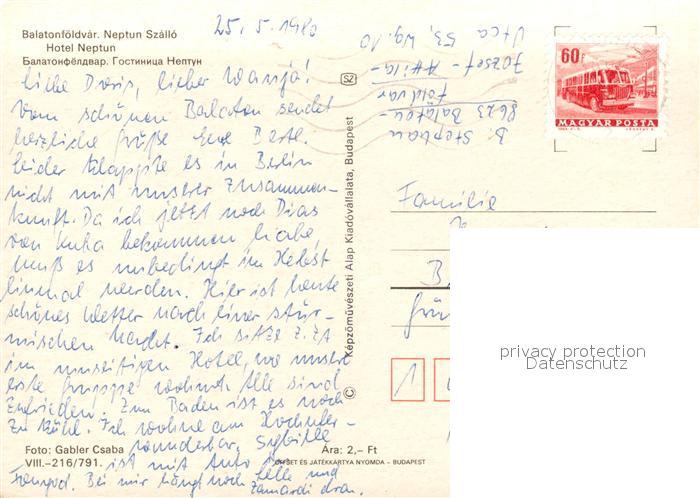 Balatonföldvár. Neptun Szálló
Hotel Neptun
Балатонфёлдвар. Гостиница Нептун
25. 5. 1980
Liebe Doris, lieber Wanja!
Vom schönen Balaton sendet
herzliche Grüße Eure
Leider klappte es in Berlin
nicht mit unserer Zusammen-
kunft. Da ich jetzt noch Dias
von Kuba bekommen habe,
muß es unbedingt im Herbst
einmal werden. Hier ist heute
schönes Wetter nach einer stür-
mischen Nacht. Ich sitze z. Zt
im Hotel, wo unsere
erste Gruppe wohnt. Alle sind
Zufrieden. Zum Baden ist es noch
zu kühl. Ich wohne am
wunderbar, Sybille
ist mit Auto
Bei mir hängt noch und
Zamárdi dran.
Foto: Gabler Csaba
VIII.–216/791.
Ára: 2,– Ft
OFFSET ÉS JÁTÉKKÁRTYA NYOMDA – BUDAPEST
© Képzőművészeti Alap Kiadóvállalata, Budapest
SZ
B. Stephan
8623 Balaton-
földvár
József-Attila-
Utca 53, Wg. 10
60f
MAGYAR POSTA
Familie
B
1
privacy protection
Datenschutz